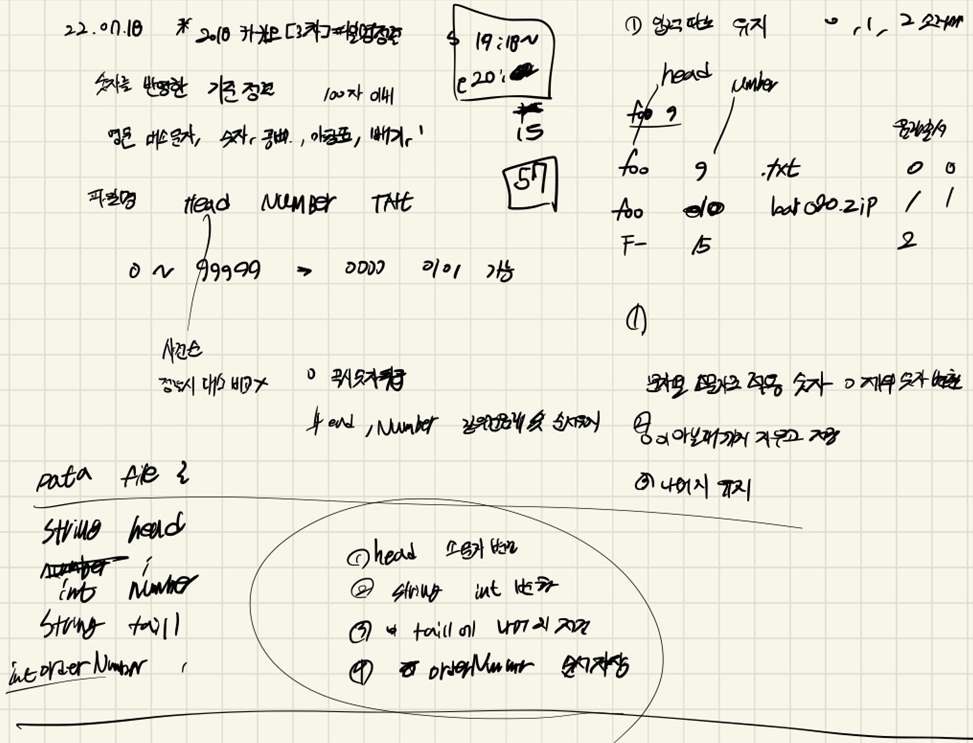 22.07.18 * 2018 카카오 [3차] 파일명 정렬
S 19:18~
e 20:
15
57
숫자를 반영한 기준 정렬 100자 이내
영문 대소문자, 숫자, 공백, 마침표, 빼기,
파일명 Head NUMBER TAIL
0 ~ 99999 → 0000 0101 가능
사전순
정렬시 대소 비교 X
0 역시 숫자
Head, Number 같을 순서
Data file {
String head
int number
String taill
int orderNumber
① head 소문자 변환
② string int 변환
③ taill에 나머지 저장
④ orderNumber 순서 저장
① 입력 유지 0, 1, 2
head number
foo 9
foo 9 .txt 0 0
foo 010 bar020.zip 1 1
F- 15 2
①
숫자 0 제외 숫자 변환
② 이 아닐때까지 지우고 저장
③ 나머지 유지